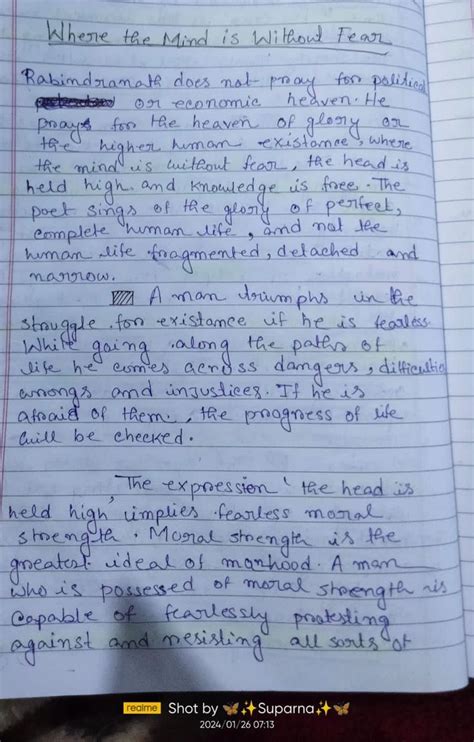 Where the Mind is Without Fear
Rabindranath does not pray for political
or economic heaven. He
prays for the heaven of glory or
the higher human existance, where
the mind is without fear, the head is
held high and knowledge is free. The
poet sings of the glory of perfect,
complete human life, and not the
human life fragmented, detached and
narrow.
A man triumphs in the
struggle for existance if he is fearless
While going along the paths of
life he comes across dangers, difficulties
wrongs and injustices. If he is
afraid of them, the progress of life
will be checked.
The expression 'the head is
held high' implies fearless moral
strength. Moral strength is the
greatest ideal of manhood. A man
who is possessed of moral strength is
capable of fearlessly protesting
against and resisting all sorts of
realme Shot by 🦋✨Suparna✨🦋
2024/01/26 07:13